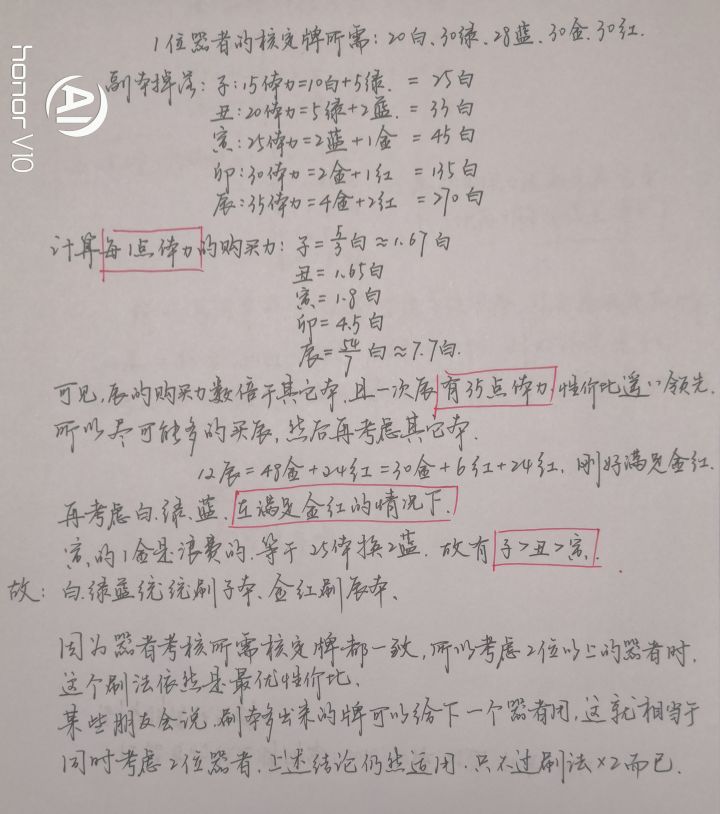 1位器者的核定牌所需:20白、30绿、28蓝、30金、30红.
副本掉落:子:15体力=10白+5绿. = 25白
丑:20体力=5绿+2蓝. = 33白
寅:25体力=2蓝+1金 = 45白
卯:30体力=2金+1红 = 135白
辰:35体力=4金+2红 = 270白
计算每1点体力的购买力:子=5/3白≈1.67白
丑=1.65白
寅=1.8白
卯=4.5白
辰=54/7白≈7.7白.
可见,辰的购买力数倍于其它本,且一次辰有35点体力,性价比遥遥领先.
所以尽可能多的买辰,然后再考虑其它本.
12辰=48金+24红=30金+6红+24红.刚好满足金红.
再考虑白.绿.蓝.在满足金红的情况下.
寅的1金是浪费的.等于25体换2蓝.故有子>丑>寅.
故:白.绿蓝统统刷子本、金红刷辰本、
因为器者考核所需核定牌都一致,所以考虑2位以上的器者时.
这个刷法依然是最优性价比.
某些朋友会说.刷本多出来的牌可以给下一个器者用,这就相当于
同时考虑2位器者.上述结论仍然适用.只不过刷法×2而已.
honor V10
AI